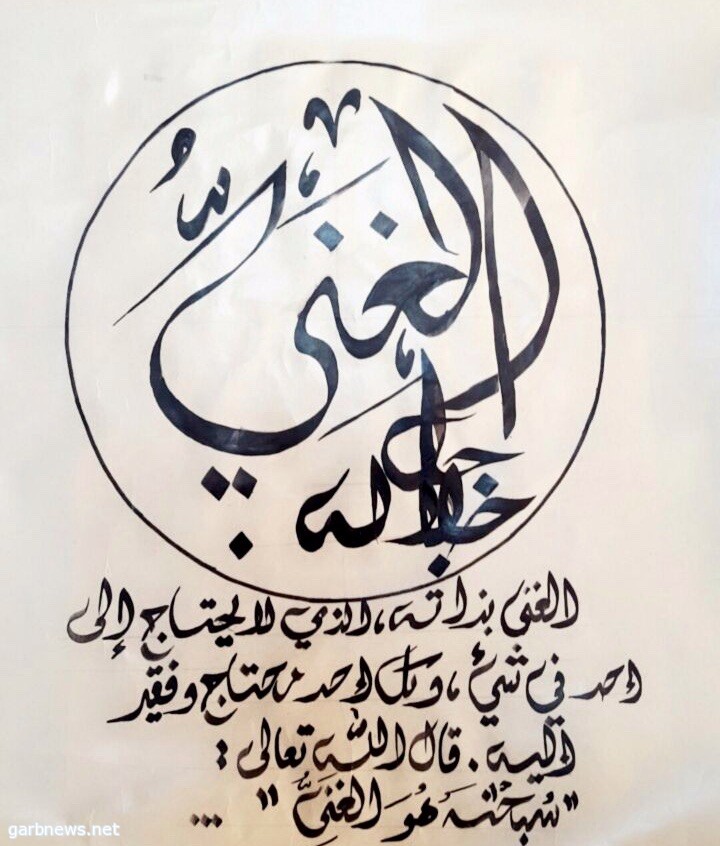 الغني
جل جلاله
الغنى بذاته، الذي لا يحتاج إلى
احد في شيء، وكل احد محتاج وفقير
اليه. قال الله تعالى :
"سُبحٰنه هُوَ الغَنِيُّ" ...
garbnews.net